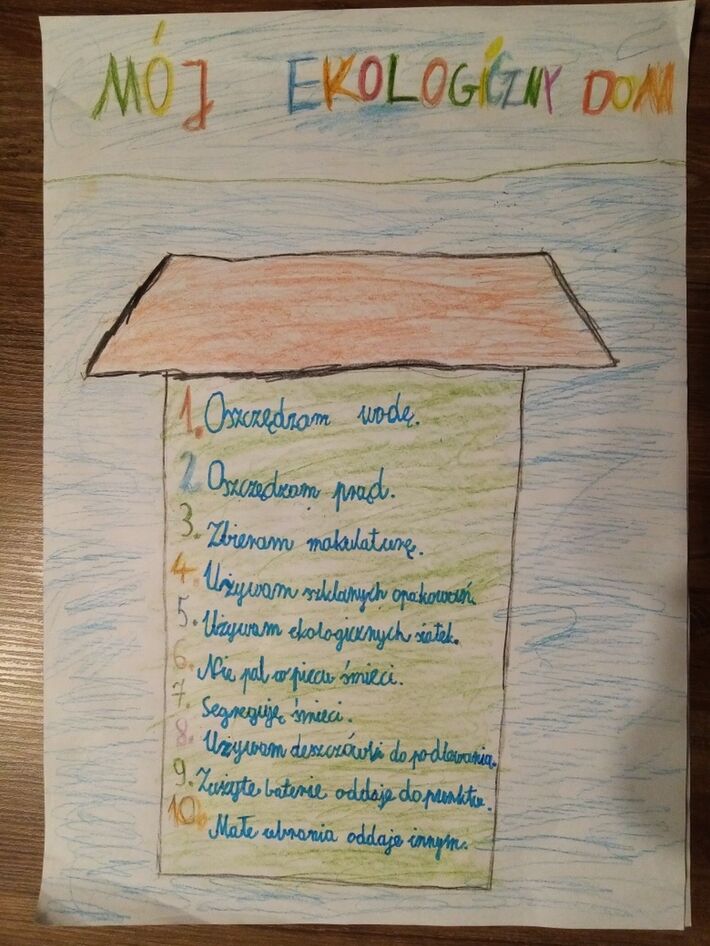 MÓJ EKOLOGICZNY DOM
1. Oszczędzam wodę.
2 Oszczędzam prąd.
3. Zbieram makulaturę.
4. Używam szklanych opakowań.
5. Używam ekologicznych siatek.
6. Nie pal w piecu śmieci.
7. Segreguję śmieci.
8. Używam deszczówki do podlewania.
9. Zużyte baterie oddaje do punktu.
10. Małe ubrania oddaje innym.